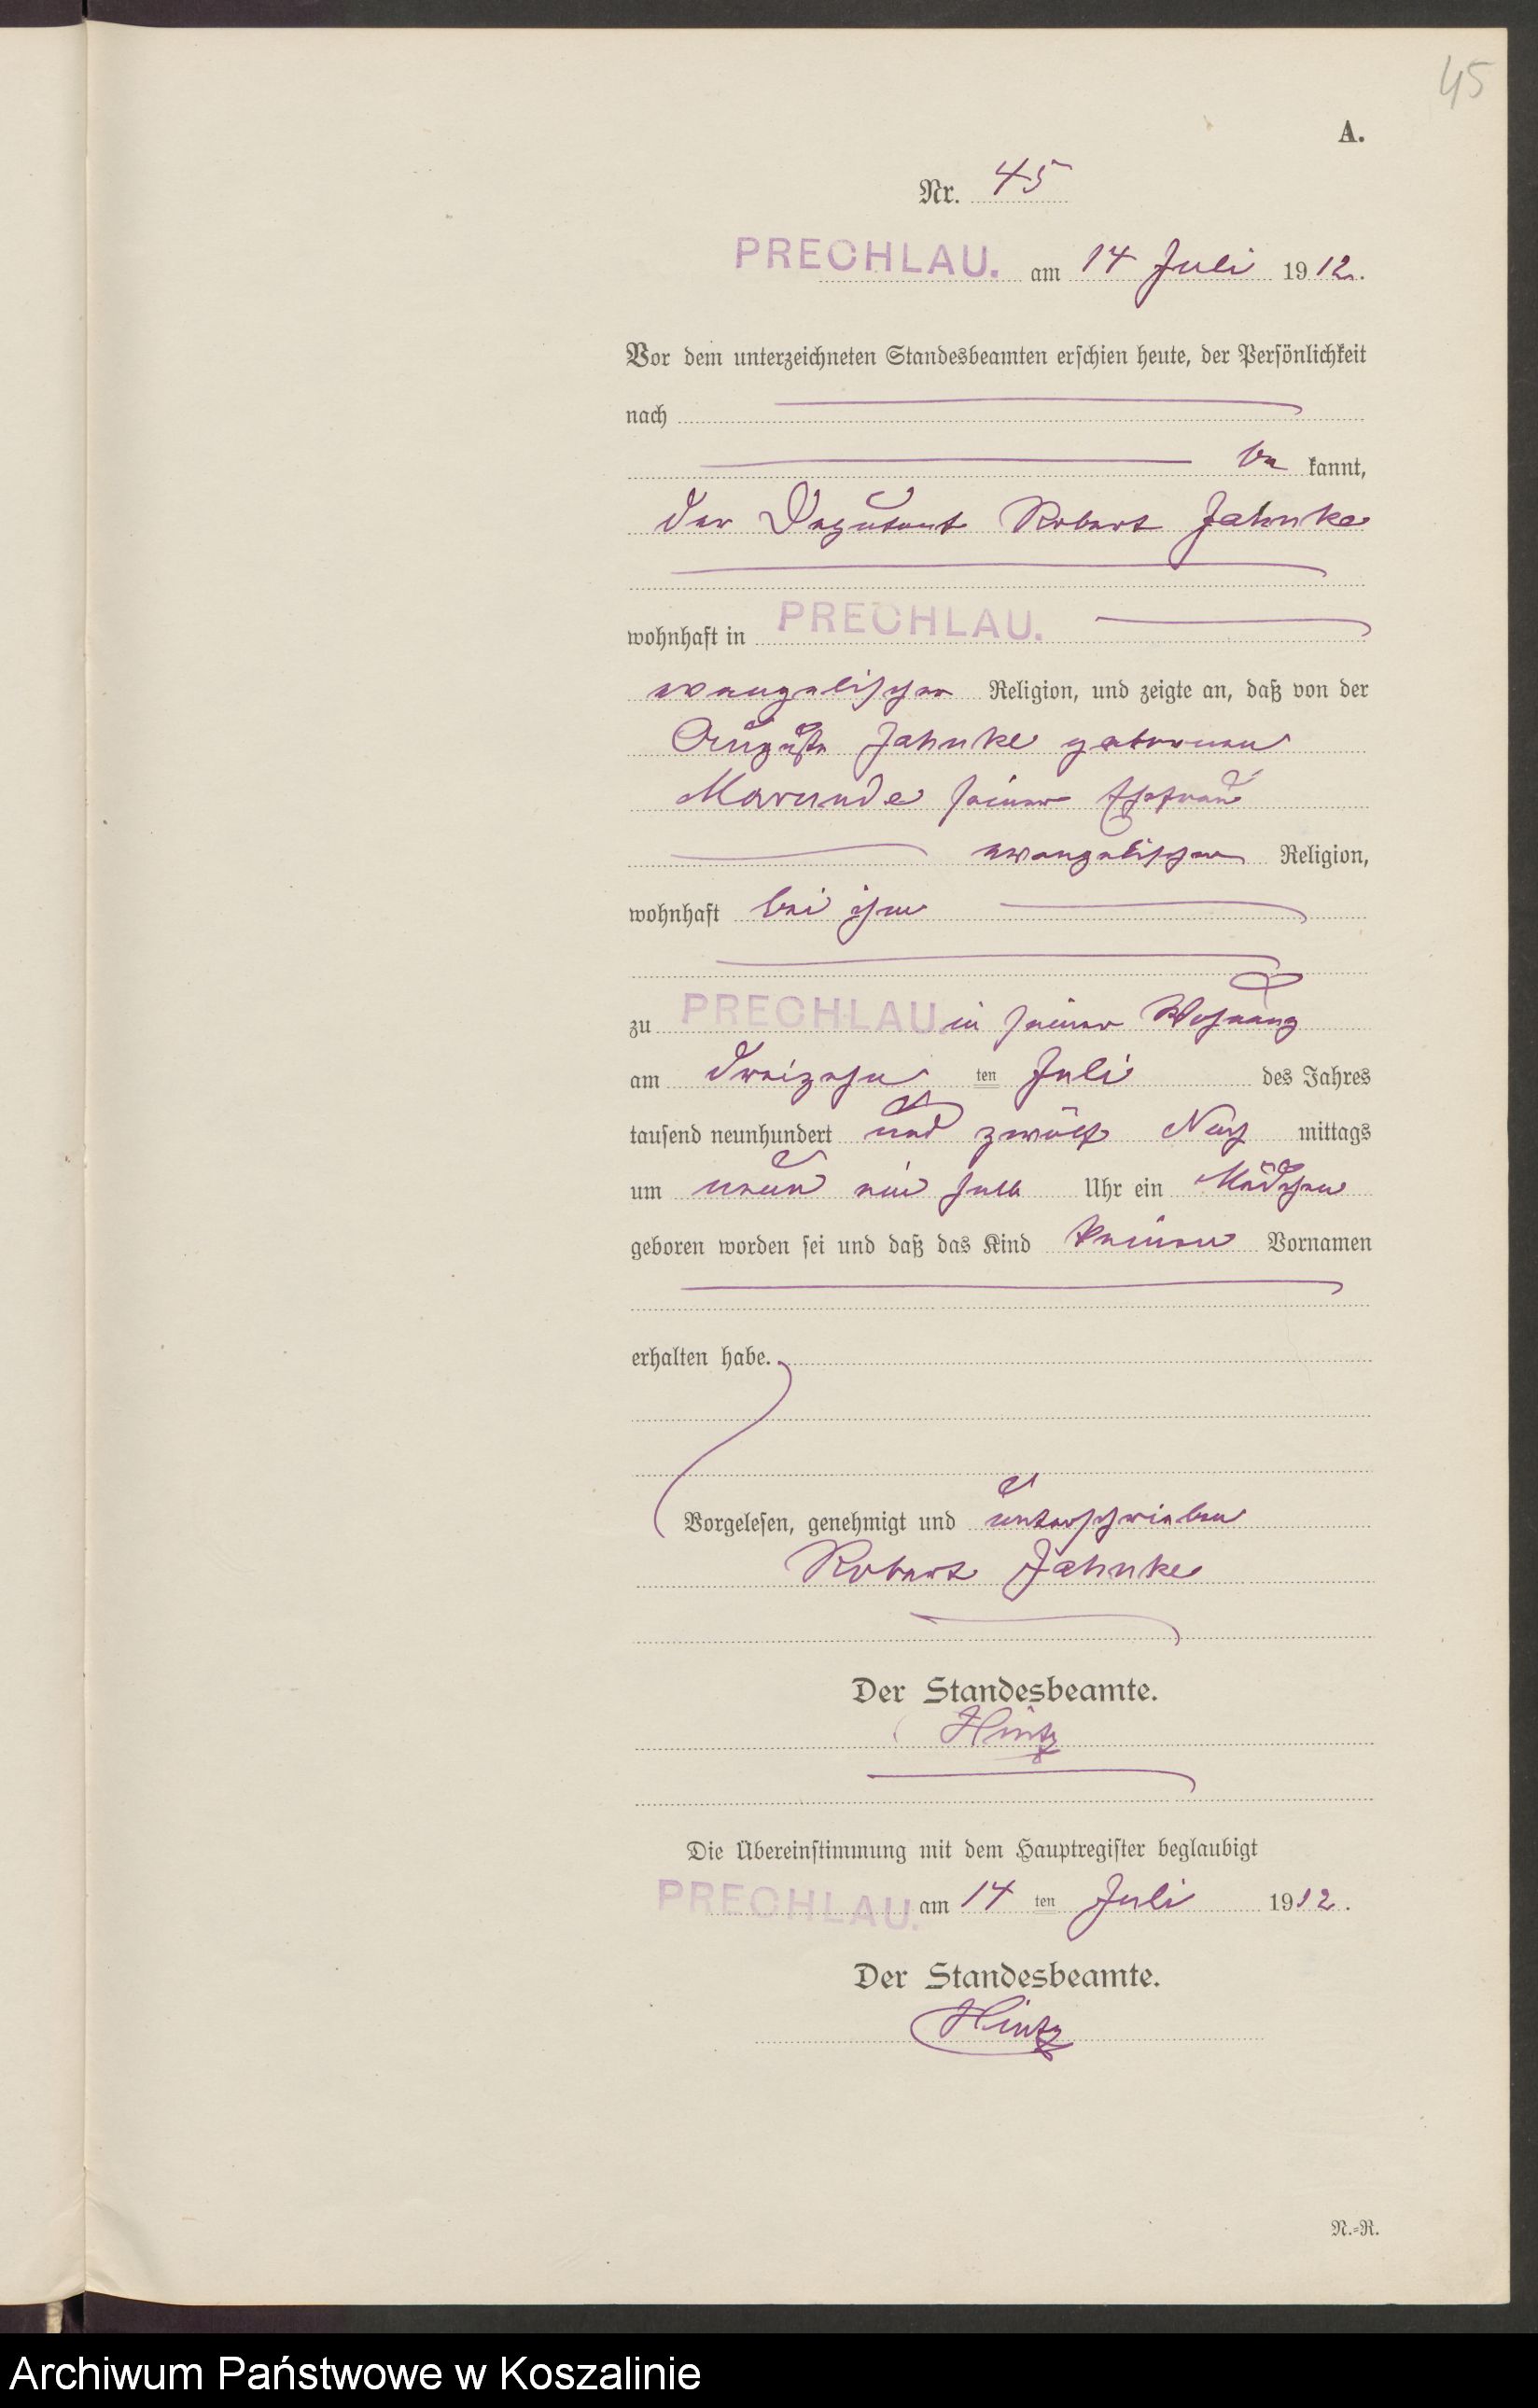 45
A.
Nr. 45
PRECHLAU. am 14 Juli 1912.
Vor dem unterzeichneten Standesbeamten erschien heute, der Persönlichkeit
nach
be kannt,
der Deputant Robert Jahnke
wohnhaft in PRECHLAU.
evangelischer Religion, und zeigte an, daß von der
Auguste Jahnke geborenen
Marunde seiner Ehefrau
evangelischer Religion,
wohnhaft bei ihm
zu PRECHLAU. in seiner Wohnung
am dreizehn ten Juli des Jahres
tausend neunhundert und zwölf Nach mittags
um neun ein halb Uhr ein Mädchen
geboren worden sei und daß das Kind keinen Vornamen
erhalten habe.
Vorgelesen, genehmigt und unterschrieben
Robert Jahnke
Der Standesbeamte.
Hintz
Die Übereinstimmung mit dem Hauptregister beglaubigt
PRECHLAU. am 14 ten Juli 1912.
Der Standesbeamte.
Hintz
N.-R.
Archiwum Państwowe w Koszalinie